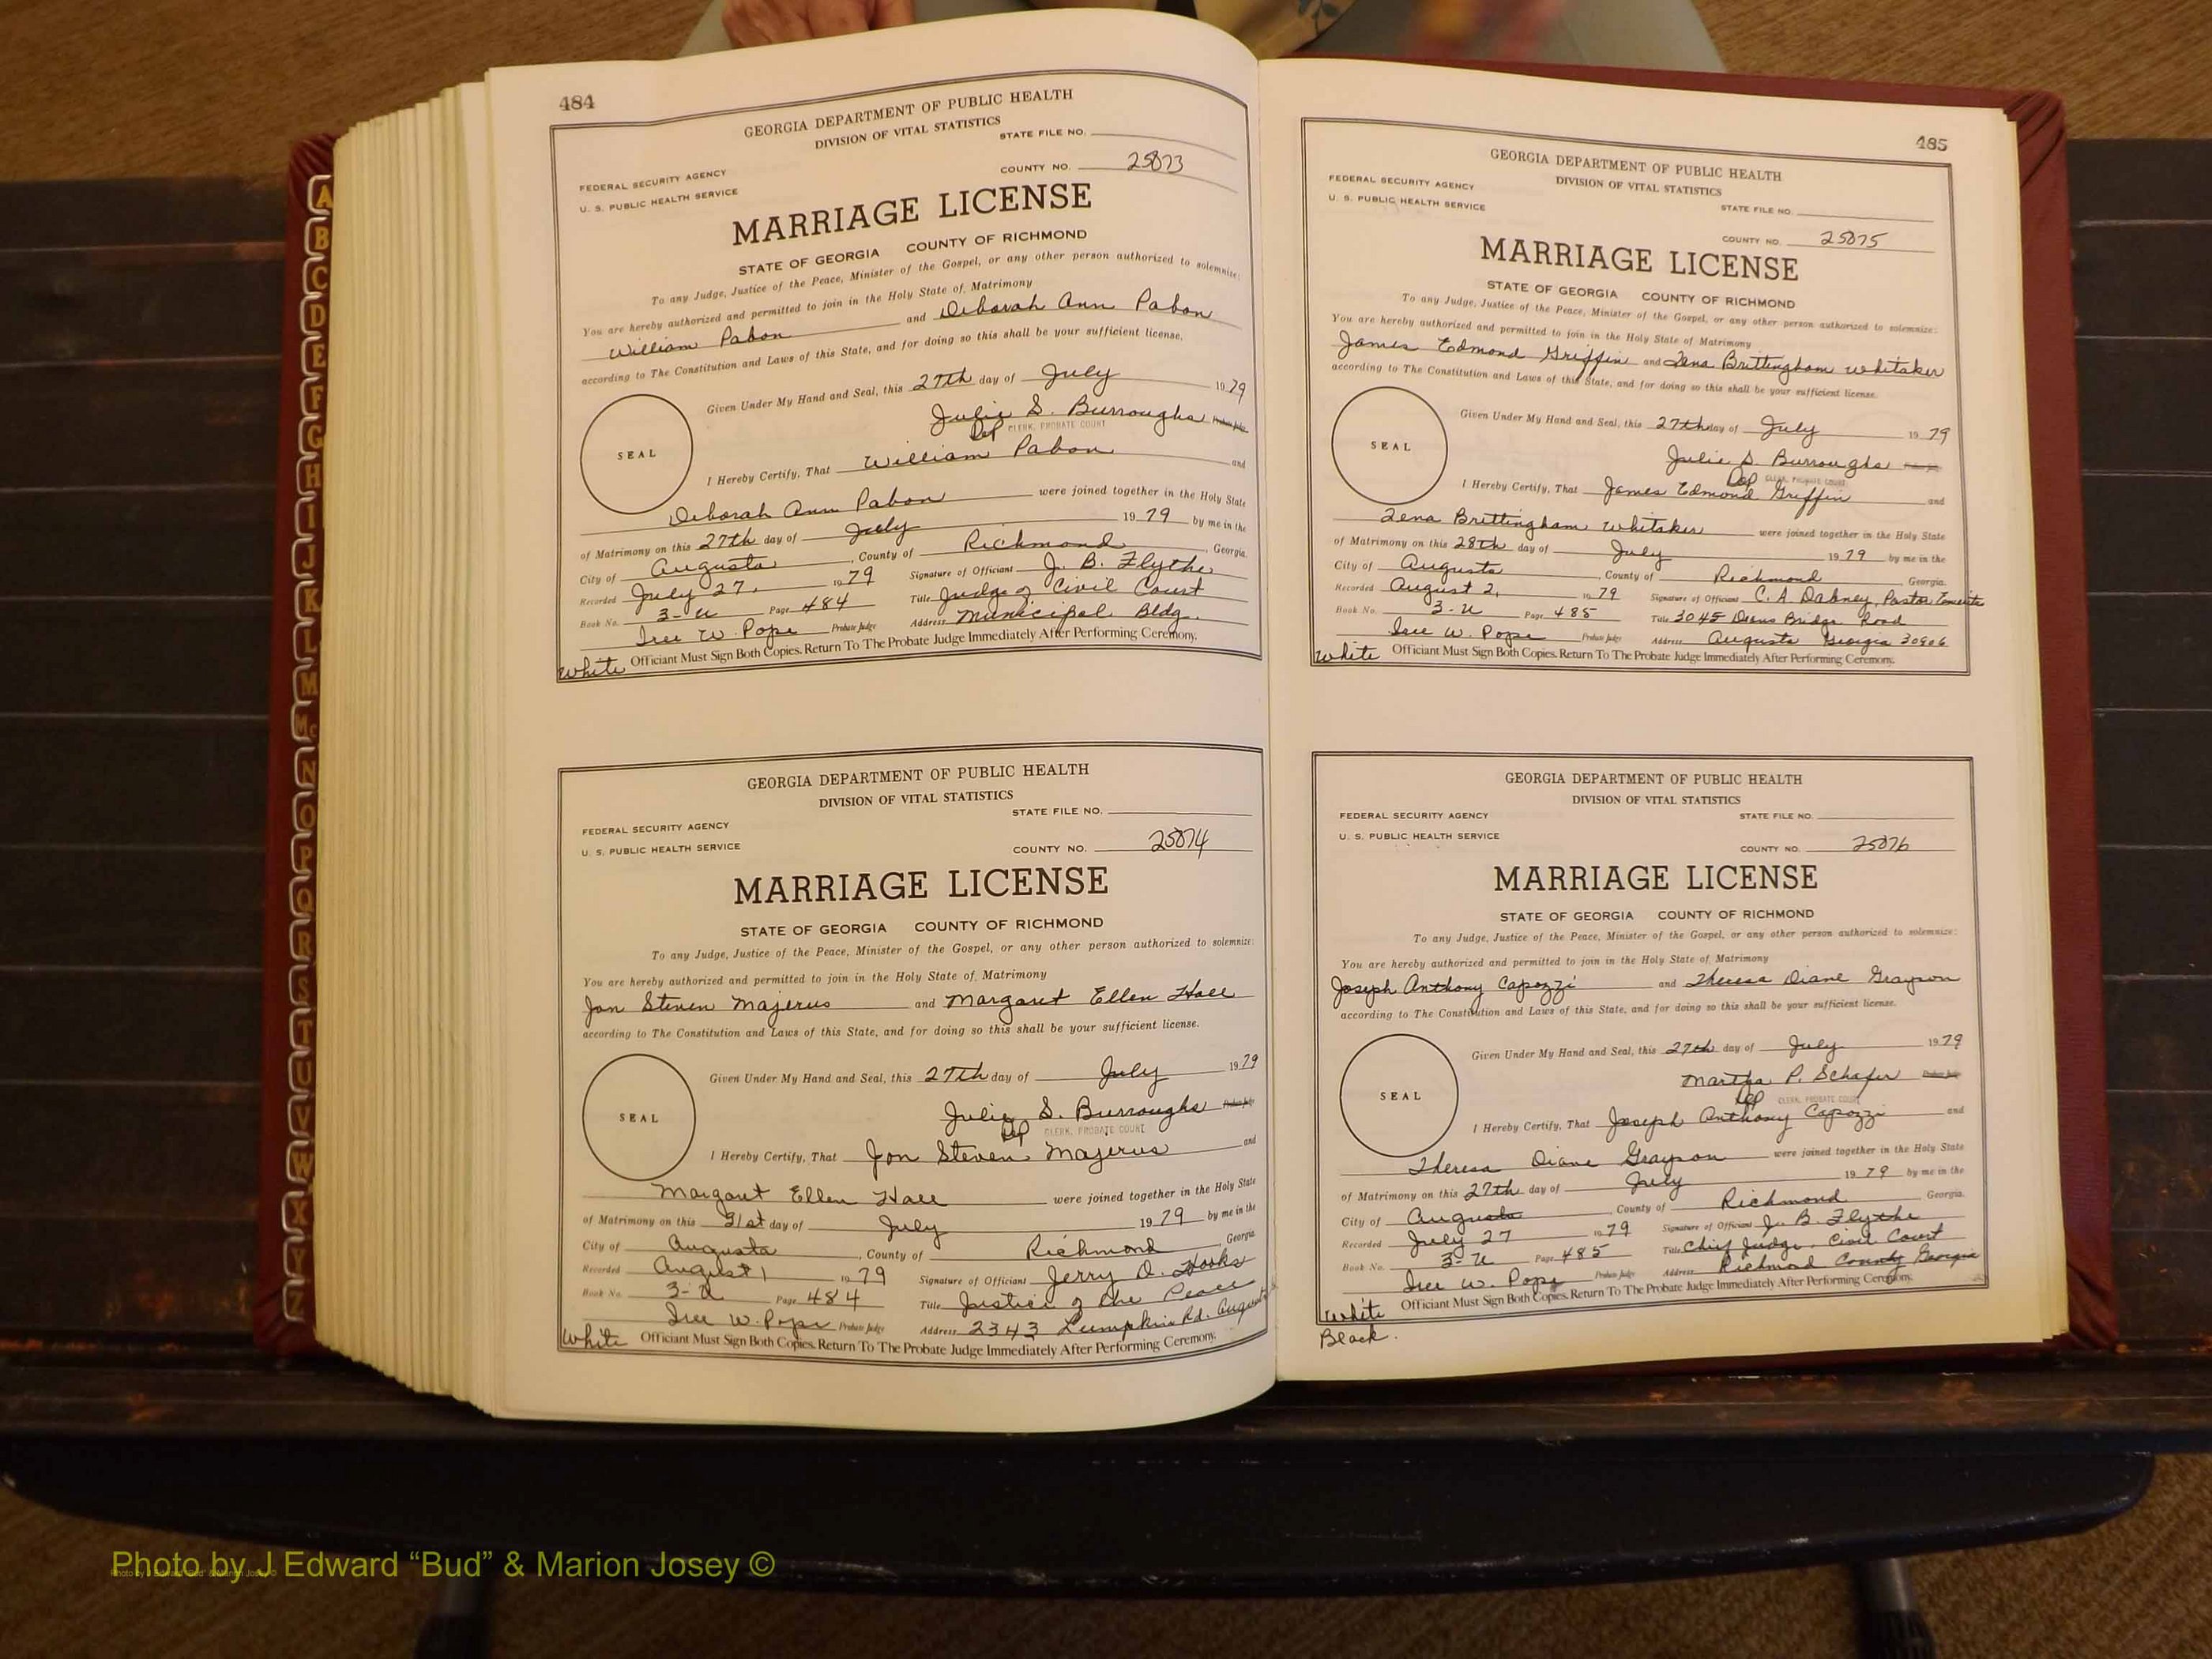 A
B
C
D
E
F
G
H
I
J
K
L
M
Mc
N
O
P
Q
R
S
T
U
V
W
X
Y
Z
484
GEORGIA DEPARTMENT OF PUBLIC HEALTH
DIVISION OF VITAL STATISTICS
STATE FILE NO.
COUNTY NO. 25873
FEDERAL SECURITY AGENCY
U. S. PUBLIC HEALTH SERVICE
MARRIAGE LICENSE
STATE OF GEORGIA COUNTY OF RICHMOND
To any Judge, Justice of the Peace, Minister of the Gospel, or any other person authorized to solemnize:
You are hereby authorized and permitted to join in the Holy State of Matrimony
William Pabon and Deborah Ann Pabon
according to The Constitution and Laws of this State, and for doing so this shall be your sufficient license.
Given Under My Hand and Seal, this 27th day of July 1979
Julie S. Burroughs Probate Judge
Dep CLERK, PROBATE COURT
SEAL
I Hereby Certify, That William Pabon and
Deborah Ann Pabon were joined together in the Holy State
of Matrimony on this 27th day of July 1979 by me in the
City of Augusta, County of Richmond, Georgia.
Recorded July 27, 1979 Signature of Officiant J. B. Flythe
Book No. 3-U Page 484 Title Judge of Civil Court
Iree W. Pope Probate Judge Address Municipal Bldg.
White Officiant Must Sign Both Copies. Return To The Probate Judge Immediately After Performing Ceremony.
GEORGIA DEPARTMENT OF PUBLIC HEALTH
DIVISION OF VITAL STATISTICS
STATE FILE NO.
FEDERAL SECURITY AGENCY
U. S. PUBLIC HEALTH SERVICE
COUNTY NO. 25874
MARRIAGE LICENSE
STATE OF GEORGIA COUNTY OF RICHMOND
To any Judge, Justice of the Peace, Minister of the Gospel, or any other person authorized to solemnize:
You are hereby authorized and permitted to join in the Holy State of Matrimony
Jon Steven Majerus and Margaret Ellen Hall
according to The Constitution and Laws of this State, and for doing so this shall be your sufficient license.
Given Under My Hand and Seal, this 27th day of July 1979
Julie S. Burroughs Probate Judge
Dep CLERK, PROBATE COURT
SEAL
I Hereby Certify, That Jon Steven Majerus and
Margaret Ellen Hall were joined together in the Holy State
of Matrimony on this 31st day of July 1979 by me in the
City of Augusta, County of Richmond, Georgia.
Recorded August 1 1979 Signature of Officiant Jerry D. Hooks
Book No. 3-U Page 484 Title Justice of the Peace
Iree W. Pope Probate Judge Address 2343 Lumpkin Rd. Augusta
White Officiant Must Sign Both Copies. Return To The Probate Judge Immediately After Performing Ceremony.
485
GEORGIA DEPARTMENT OF PUBLIC HEALTH
DIVISION OF VITAL STATISTICS
FEDERAL SECURITY AGENCY
U. S. PUBLIC HEALTH SERVICE
STATE FILE NO.
COUNTY NO. 25875
MARRIAGE LICENSE
STATE OF GEORGIA COUNTY OF RICHMOND
To any Judge, Justice of the Peace, Minister of the Gospel, or any other person authorized to solemnize:
You are hereby authorized and permitted to join in the Holy State of Matrimony
James Edmond Griffin and Zena Brittingham Whitaker
according to The Constitution and Laws of this State, and for doing so this shall be your sufficient license.
Given Under My Hand and Seal, this 27th day of July 1979
Julie S. Burroughs
Dep CLERK, PROBATE COURT
SEAL
I Hereby Certify, That James Edmond Griffin and
Zena Brittingham Whitaker were joined together in the Holy State
of Matrimony on this 28th day of July 1979 by me in the
City of Augusta, County of Richmond, Georgia.
Recorded August 2, 1979 Signature of Officiant C. A. Dabney, Pastor
Book No. 3-U Page 485 Title 3045 Deans Bridge Road
Iree W. Pope Probate Judge Address Augusta Georgia 30906
White Officiant Must Sign Both Copies. Return To The Probate Judge Immediately After Performing Ceremony.
GEORGIA DEPARTMENT OF PUBLIC HEALTH
DIVISION OF VITAL STATISTICS
FEDERAL SECURITY AGENCY STATE FILE NO.
U. S. PUBLIC HEALTH SERVICE
COUNTY NO. 25876
MARRIAGE LICENSE
STATE OF GEORGIA COUNTY OF RICHMOND
To any Judge, Justice of the Peace, Minister of the Gospel, or any other person authorized to solemnize:
You are hereby authorized and permitted to join in the Holy State of Matrimony
Joseph Anthony Capozzi and Theresa Diane Grayson
according to The Constitution and Laws of this State, and for doing so this shall be your sufficient license.
Given Under My Hand and Seal, this 27th day of July 1979
Martha P. Schafer Probate Judge
Dep CLERK, PROBATE COURT
SEAL
I Hereby Certify, That Joseph Anthony Capozzi and
Theresa Diane Grayson were joined together in the Holy State
of Matrimony on this 27th day of July 1979 by me in the
City of Augusta, County of Richmond, Georgia.
Recorded July 27 1979 Signature of Officiant J. B. Flythe
Book No. 3-U Page 485 Title Chief Judge, Civil Court
Iree W. Pope Probate Judge Address Richmond County Georgia
White Officiant Must Sign Both Copies. Return To The Probate Judge Immediately After Performing Ceremony.
Black.
Photo by J Edward “Bud” & Marion Josey ©
Photo by J Edward "Bud" & Marion Josey ©